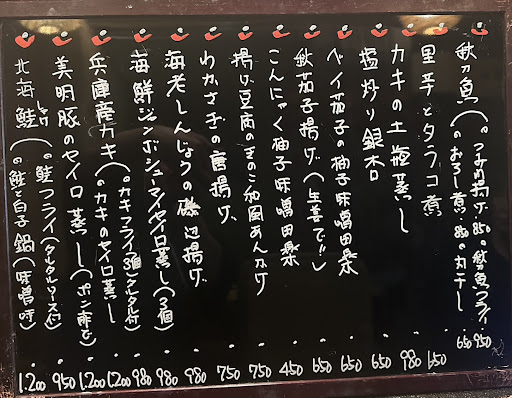 秋刀魚(。つみれ揚げ 850 。秋刀魚フライ 950
。おろし煮 850 。丸干し 650
里芋とタラコ煮 650
カキの土瓶蒸し 980
塩炒り銀杏 650
ベイ茄子の柚子味噌田楽 650
秋茄子揚げ(生姜で!!) 650
こんにゃく柚子味噌田楽 450
揚げ豆腐のきのこ和風あんかけ 750
わかさぎの唐揚げ 750
海老しんじょうの磯辺揚げ 980
海鮮ジャンボシューマイセイロ蒸し(3個) 980
兵庫産カキ(。カキフライ3個(タルタル付) 980
。カキのセイロ蒸し 1,200
美明豚のセイロ蒸し(ポン酢で) 1,200
北海鮭(。鮭フライ(タルタルソース付) 950
。鮭と白子鍋(味噌味) 1,200